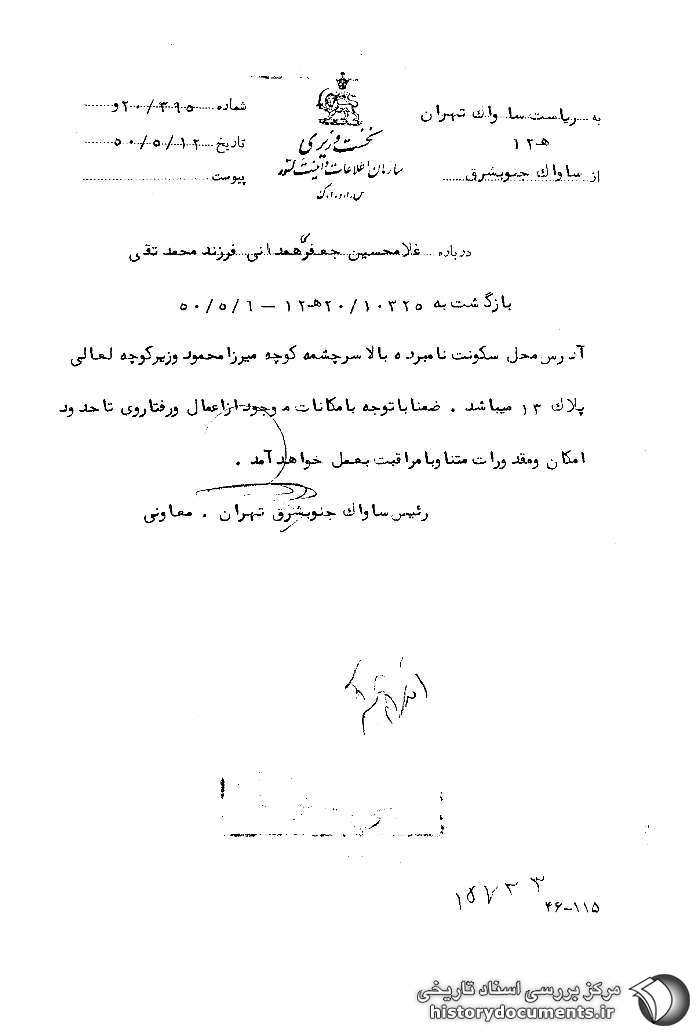 به ریاست ساواك تهران
۱۲ه‍
از ساواك جنوبشرق
نخست وزیری
سازمان اطلاعات و امنیت کشور
س.ا.و.ا.ک
شماره ۲۰/۳۹۵و
تاریخ ۵۰/۵/۱۲
پیوست
درباره غلامحسین جعفری همدانی فرزند محمد تقی
بازگشت به ۲۰/۱۰۳۲۵ه‍۱۲ – ۵۰/۵/۶
آدرس محل سکونت نامبرده بالا سرچشمه کوچه میرزا محمود وزیر کوچه لعالی
پلاك ۱۳ میباشد . ضمنا با توجه با مکانات موجود از اعمال و رفتار وی تا حدود
امکان و مقدورات متناوبا مراقبت بعمل خواهد آمد .
رئیس ساواك جنوبشرق تهران . معاونی
۱۵۷۳۳
۴۶-۱۱۵
مرکز بررسی اسناد تاریخی
historydocuments.ir